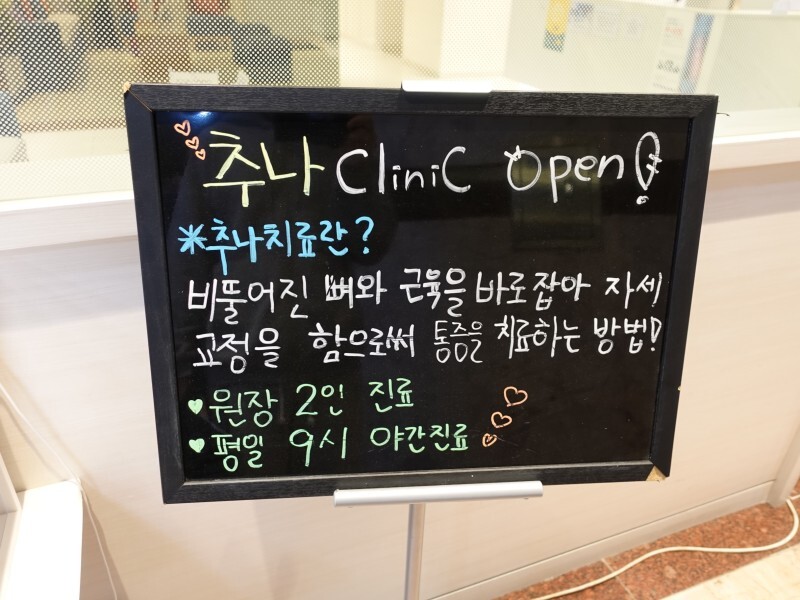 추나 CliniC Open!
*추나치료란?
비뚤어진 뼈와 근육을 바로잡아 자세
교정을 함으로써 통증을 치료하는 방법!
♥원장 2인 진료
♥평일 9시 야간진료